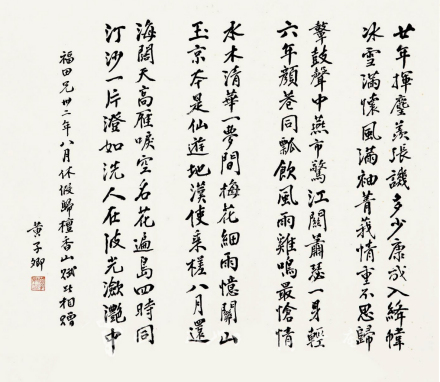 廿年揮麈羨張譏多少康成入絳幃
冰雪滿懷風滿袖菁莪情重不思歸
鼙鼓聲中燕市驚江關蕭瑟一身輕
六年顏巷同瓢飲風雨雞鳴最愴情
水木清華一夢間梅花細雨憶關山
玉京本是仙遊地漢使乘槎八月還
海闊天高雁唳空名花遍島四時同
汀沙一片澄如洗人在波光瀲灩中
福田兄卅二年八月休假歸檀香山賦此相贈
黄子卿